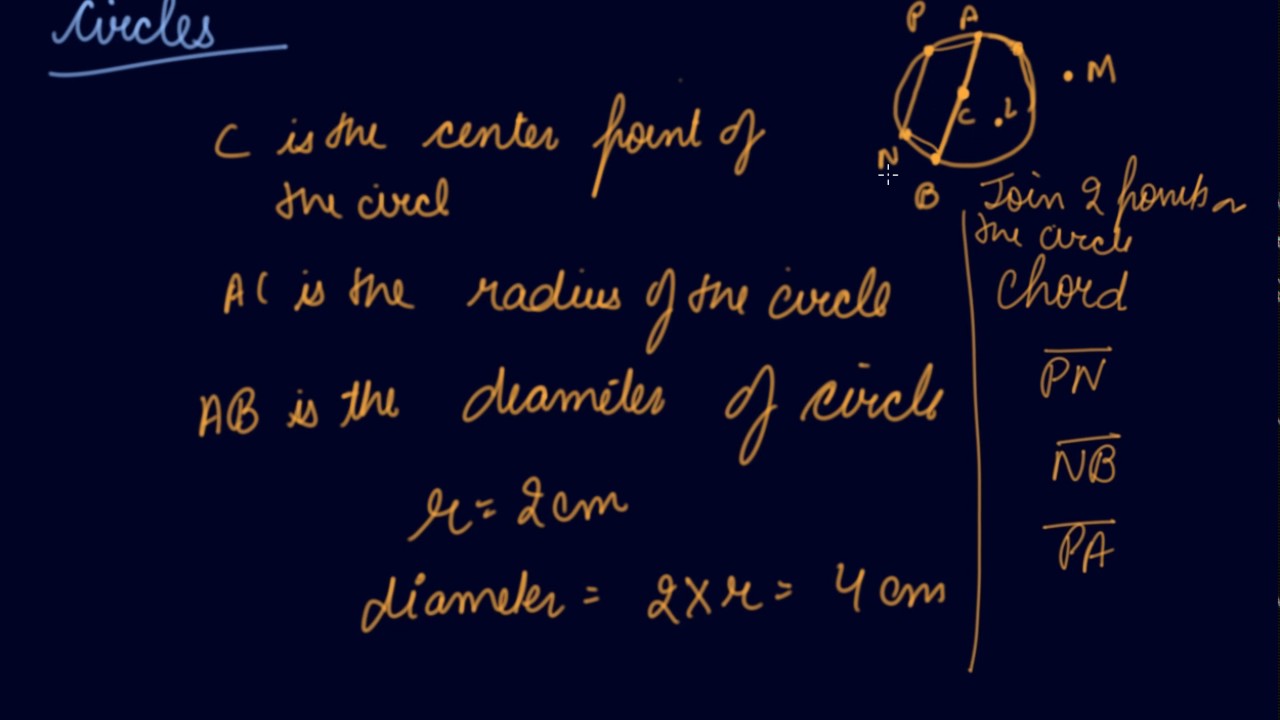 Circles
P A
M
C L
N
B
C is the center point of
the circl
Join 2 points
the circle
AC is the radius of the circle
Chord
AB is the diameter of circle
PN
NB
r = 2cm
PA
diameter = 2 x r = 4 cm